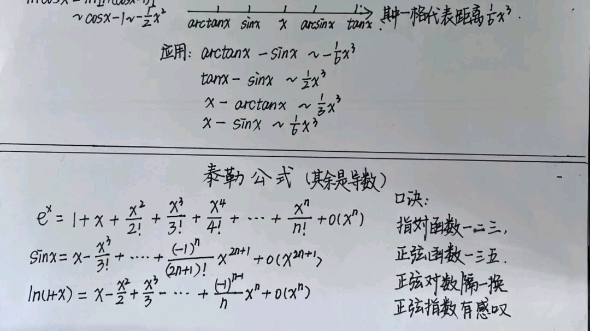 ~cosx-1~-½x²
arctanx sinx x arcsinx tanx, 其中一格代表距离⅙x³.
应用: arctanx - sinx ~ -⅙x³
tanx - sinx ~ ½x³
x - arctanx ~ ⅓x³
x - sinx ~ ⅙x³
泰勒公式 (其余是导数)
e^x = 1+x+x²/2!+x³/3!+x⁴/4!+⋯+xⁿ/n!+o(xⁿ)
sinx = x-x³/3!+⋯+(-1)ⁿ/(2n+1)! x^(2n+1)+o(x^(2n+1))
ln(1+x) = x-x²/2+x³/3-⋯+(-1)^(n-1)/n xⁿ+o(xⁿ)
口诀:
指对函数一二三,
正弦函数一三五.
正弦对数隔一换
正弦指数有感叹